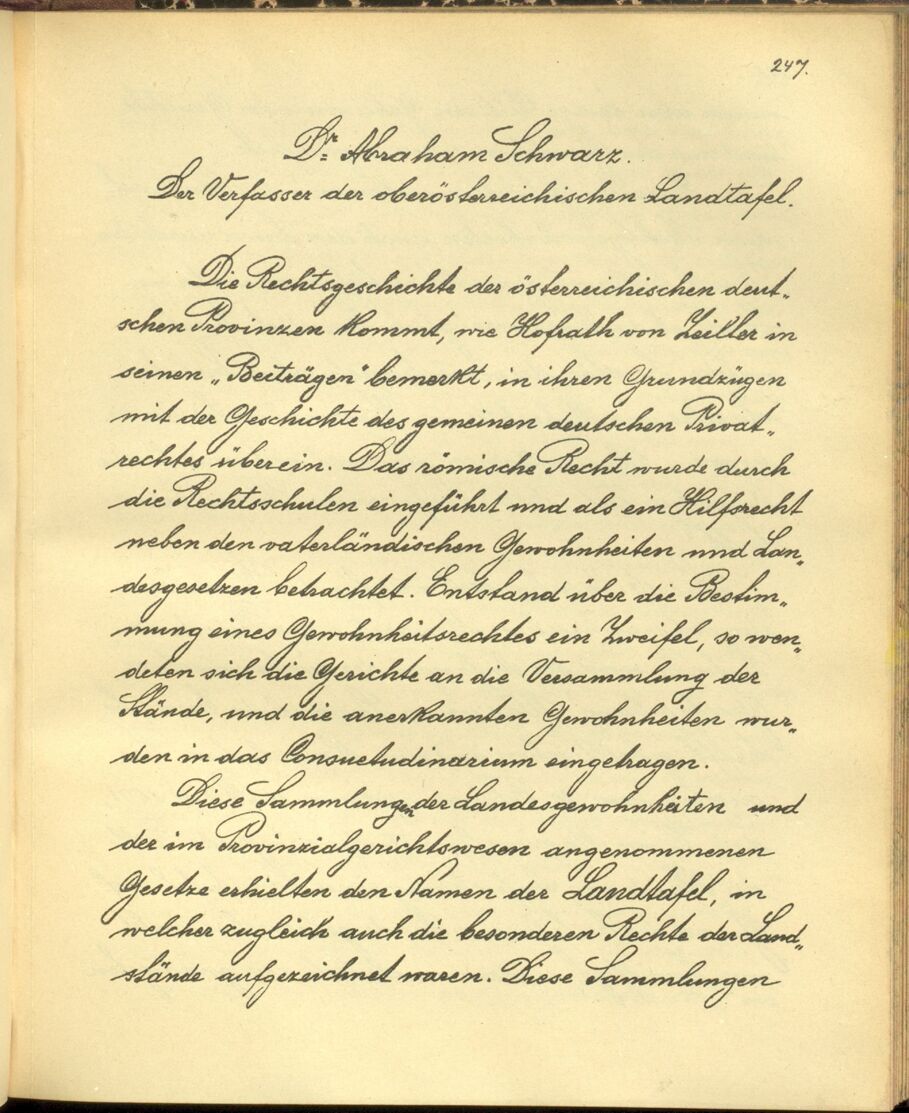 247.
Dr. Abraham Schwarz.
Der Verfasser der oberösterreichischen Landtafel.
Die Rechtsgeschichte der österreichischen deut„
schen Provinzen kommt, wie Hofrath von Zeiller in
seinen „Beiträgen" bemerkt, in ihren Grundzügen
mit der Geschichte des gemeinen deutschen Privat„
rechtes überein. Das römische Recht wurde durch
die Rechtsschulen eingeführt und als ein Hilfsrecht
neben den vaterländischen Gewohnheiten und Lan„
desgesetzen betrachtet. Entstand über die Bestim„
mung eines Gewohnheitsrechtes ein Zweifel, so wen„
deten sich die Gerichte an die Versammlung der
Stände, und die anerkannten Gewohnheiten wur„
den in das Consuetudinarium eingetragen.
Diese Sammlungen der Landesgewohnheiten und
der im Provinzialgerichtswesen angenommenen
Gesetze erhielten den Namen der Landtafel, in
welcher zugleich auch die besonderen Rechte der Land„
stände aufgezeichnet waren. Diese Sammlungen